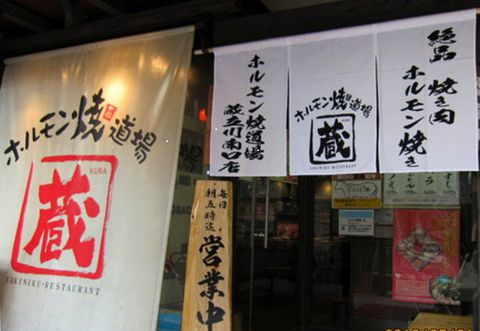 ホルモン焼道場
蔵
KURA
YAKINIKU・RESTAURANT
絶品
焼き肉
ホルモン焼き
ホルモン焼道場
蔵
KURA
YAKINIKU・RESTAURANT
ホルモン焼道場
蔵立川南口店
毎日
朝五時迄
営業中